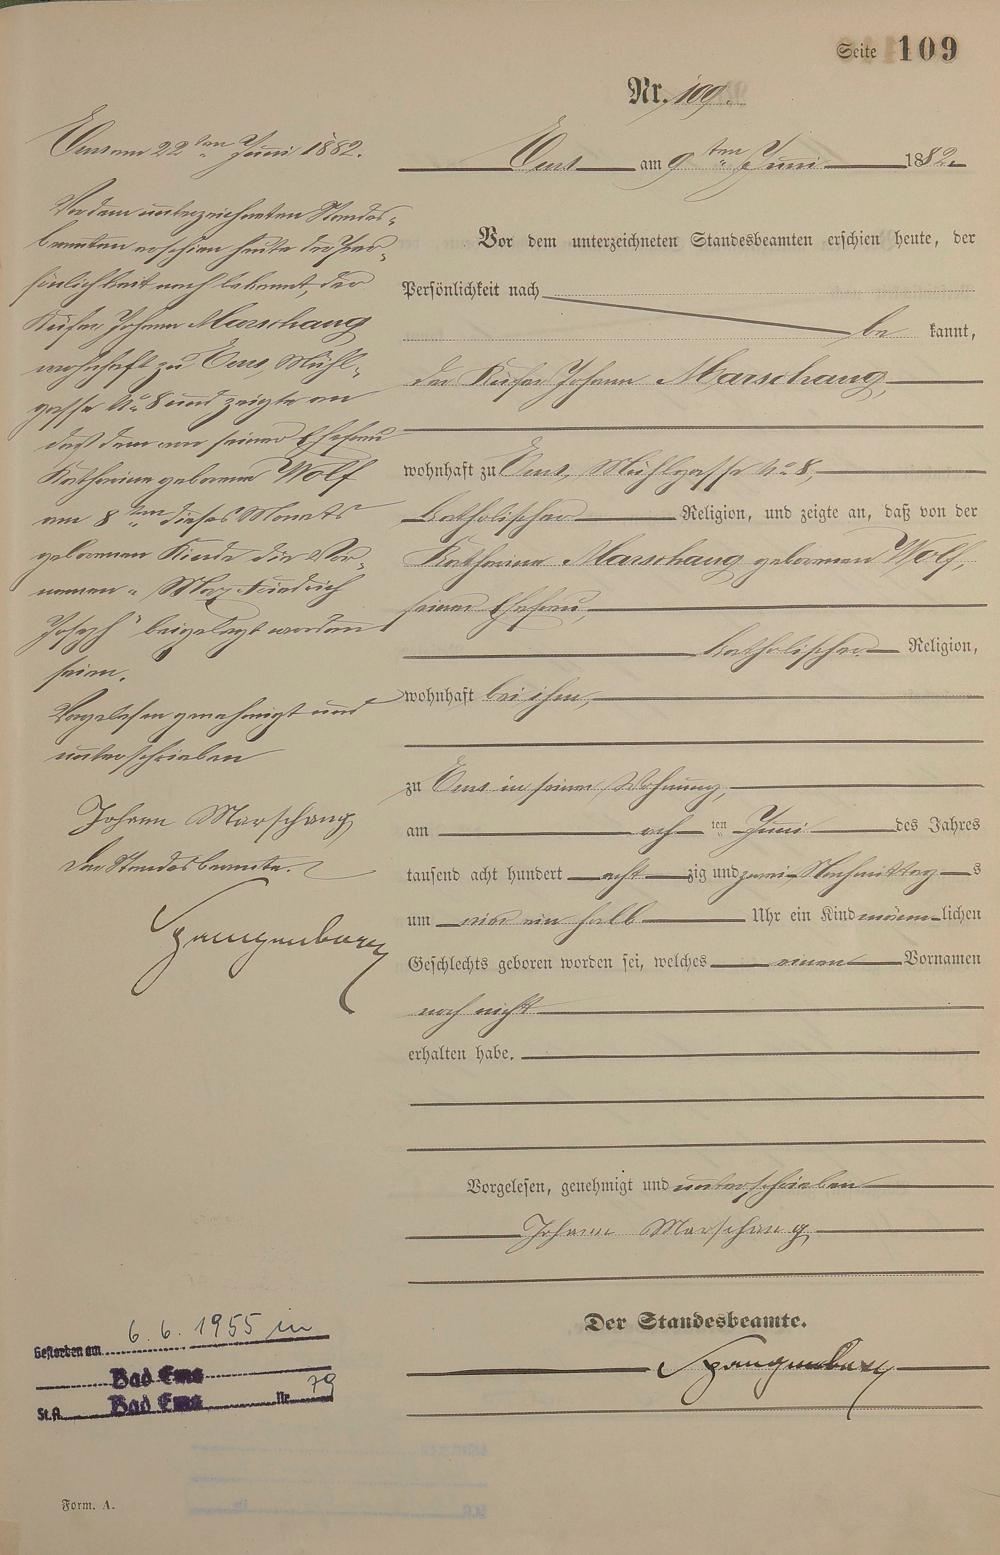 Seite 109
Nr. 109.
Ems am 22ten Juni 1882.
Vor dem unterzeichneten Standes-
beamten erschien heute der Per-
sönlichkeit nach bekannt, der
Küfer Johann Marschang
wohnhaft zu Ems, Mühl-
gasse No 8 und zeigte an
daß dem von seiner Ehefrau
Katharina geborene Wolf
am 8ten dieses Monats
geborenen Kinde die Vor-
namen „Max Friedrich
Joseph" beigelegt worden
seien.
Vorgelesen genehmigt und
unterschrieben
Johann Marschang
Der Standesbeamte.
Spangenberg
Ems am 9ten Juni 1882.
Vor dem unterzeichneten Standesbeamten erschien heute, der
Persönlichkeit nach
be kannt,
der Küfer Johann Marschang,
wohnhaft zu Ems, Mühlgasse No 8,
katholischer Religion, und zeigte an, daß von der
Katharina Marschang geborenen Wolf,
seiner Ehefrau,
katholischer Religion,
wohnhaft bei ihm,
zu Ems in seiner Wohnung,
am acht ten Juni des Jahres
tausend acht hundert acht zig und zwei Nachmittag s
um vier ein halb Uhr ein Kind männ lichen
Geschlechts geboren worden sei, welches einen Vornamen
noch nicht
erhalten habe.
Vorgelesen, genehmigt und unterschrieben
Johann Marschang
Der Standesbeamte.
Spangenberg
Gestorben am 6.6.1955 in
Bad Ems
St.A. Bad Ems Nr. 79
Form. A.